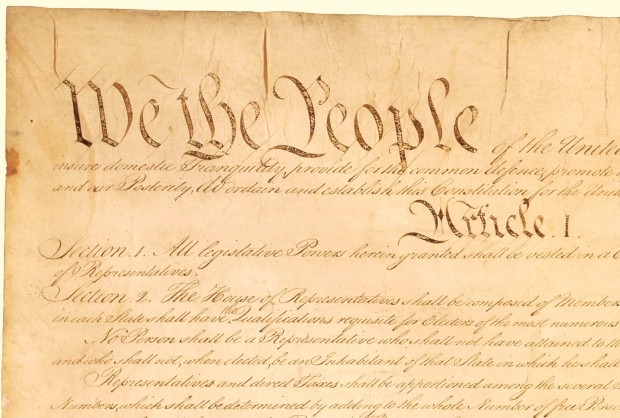 We the People of the United
insure domestic Tranquility, provide for the common defence, promote
and our Posterity, do ordain and establish this Constitution for the Unit
Article. I.
Section. 1. All legislative Powers herein granted shall be vested in a C
of Representatives.
Section. 2. The House of Representatives shall be composed of Members
in each State shall have the Qualifications requisite for Electors of the most numerous
No Person shall be a Representative who shall not have attained to th
and who shall not, when elected, be an Inhabitant of that State in which he shall
Representatives and direct Taxes shall be apportioned among the several
Numbers, which shall be determined by adding to the whole Number of free Perso